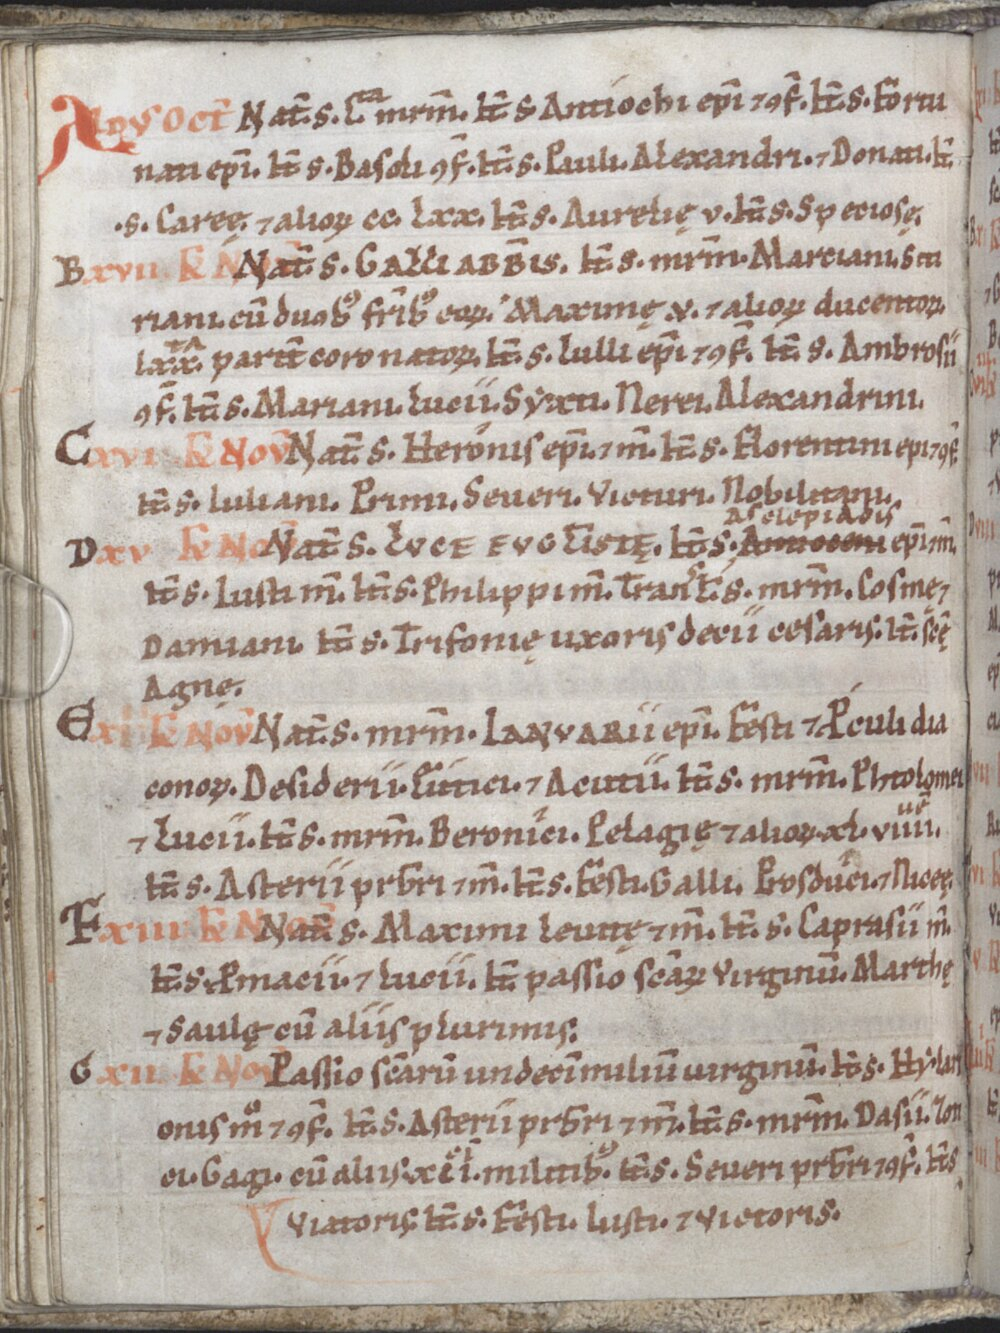 A Idus oct̄ Nat̄. s. Lta mr̄m. It̄. s. Antiochi ep̄i ⁊ ꝯf̄. It̄. s. Fortu
nati ep̄i. It̄. s. Basoli ꝯf̄. It̄. s. Pauli. Alexandri. ⁊ Donati. It̄.
.s. Careę. ⁊ alioꝝ cc. Lxx. It̄. s. Aurelię v. It̄. s. Speciosę.
B xvii kł Nov̄ Nat̄. s. Galli abb̄is. It̄. s. mr̄m. Marciani. Satu
riani. cū duobꝰ fr̄ibꝰ eoꝝ. Maximę v. ⁊ alioꝝ ducentoꝝ.
Lxxta. parit̄ coronatoꝝ. It̄. s. Lulli ep̄i ⁊ ꝯf̄. It̄. s. Ambrosii
ꝯf̄. It̄. s. Mariani. Lucii. Syxti. Nerei. Alexandrini.
C xvi kł Nov̄ Nat̄. s. Heronis ep̄i. ⁊ m̄. It̄. s. Florentini epi ⁊ ꝯf̄.
It̄. s. Iuliani. Primi. Seueri. Victuri. Nobilitani.
Asclepiadis
D xv kł Nov̄ Nat̄. s. Luce euḡlistę. It̄. s. Antioceni ep̄i ⁊ m̄.
It̄. s. Iusti m̄. It̄. s. Philippi m̄. Transł. s. mr̄m. Cosmę ⁊
Damiani. It̄. s. Trifonię uxoris decii cesaris. It̄. sc̄ę
Agnę.
E xiiii kł Nov̄ Nat̄. s. mr̄m. Ianuarii ep̄i. Festi ⁊ P̄culi dia
conoꝝ. Desiderii. Eutici. ⁊ Acutii. It̄. s. mr̄m. Phtolomei
⁊ Lucii. It̄. s. mr̄m. Beronici. Pelagię ⁊ alioꝝ. xl. viiiiuē.
It̄. s. Asterii pr̄bri ⁊ m̄. It̄. s. Festi. Galli. Busduci. ⁊ Niceę.
F xiii kł Nov̄ Nat̄. s. Maximi Leuitę ⁊ m̄. It̄. s. Caprasii m̄.
It̄. s. Pmacii. ⁊ Lucii. It̄ passio sc̄aꝝ virginū. Marthę
⁊ Saulę cū aliis plurimis.
G xii kł Nov̄ Passio sc̄arū undecīmiliū uirginū. It̄. s. Hylari
onis mō ⁊ ꝯf̄. It̄. s. Asterii pr̄bri ⁊ m̄. It̄. s. mr̄m. Dasii. Zoti
ci. Gagi. cū aliis. xcī. militibꝰ. It̄. s. Seueri pr̄bri ⁊ ꝯf̄. It̄. s.
Viatoris. It̄. s. Festi. Iusti. ⁊ Victoris.